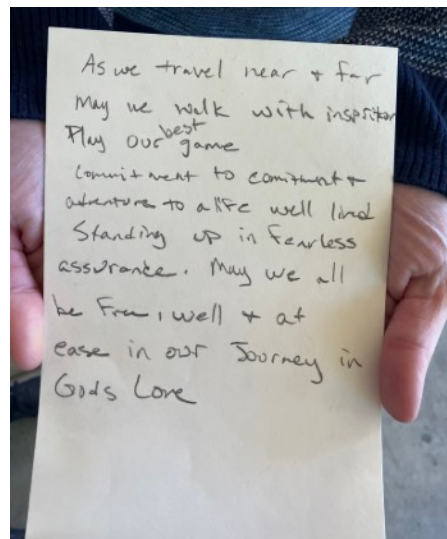 As we travel near + far
May we walk with inspiration
Play our best game
Commitment to comitment +
adventure to a life well lived
Standing up in fearless
assurance. May we all
be Free, well + at
ease in our Journey in
Gods Love